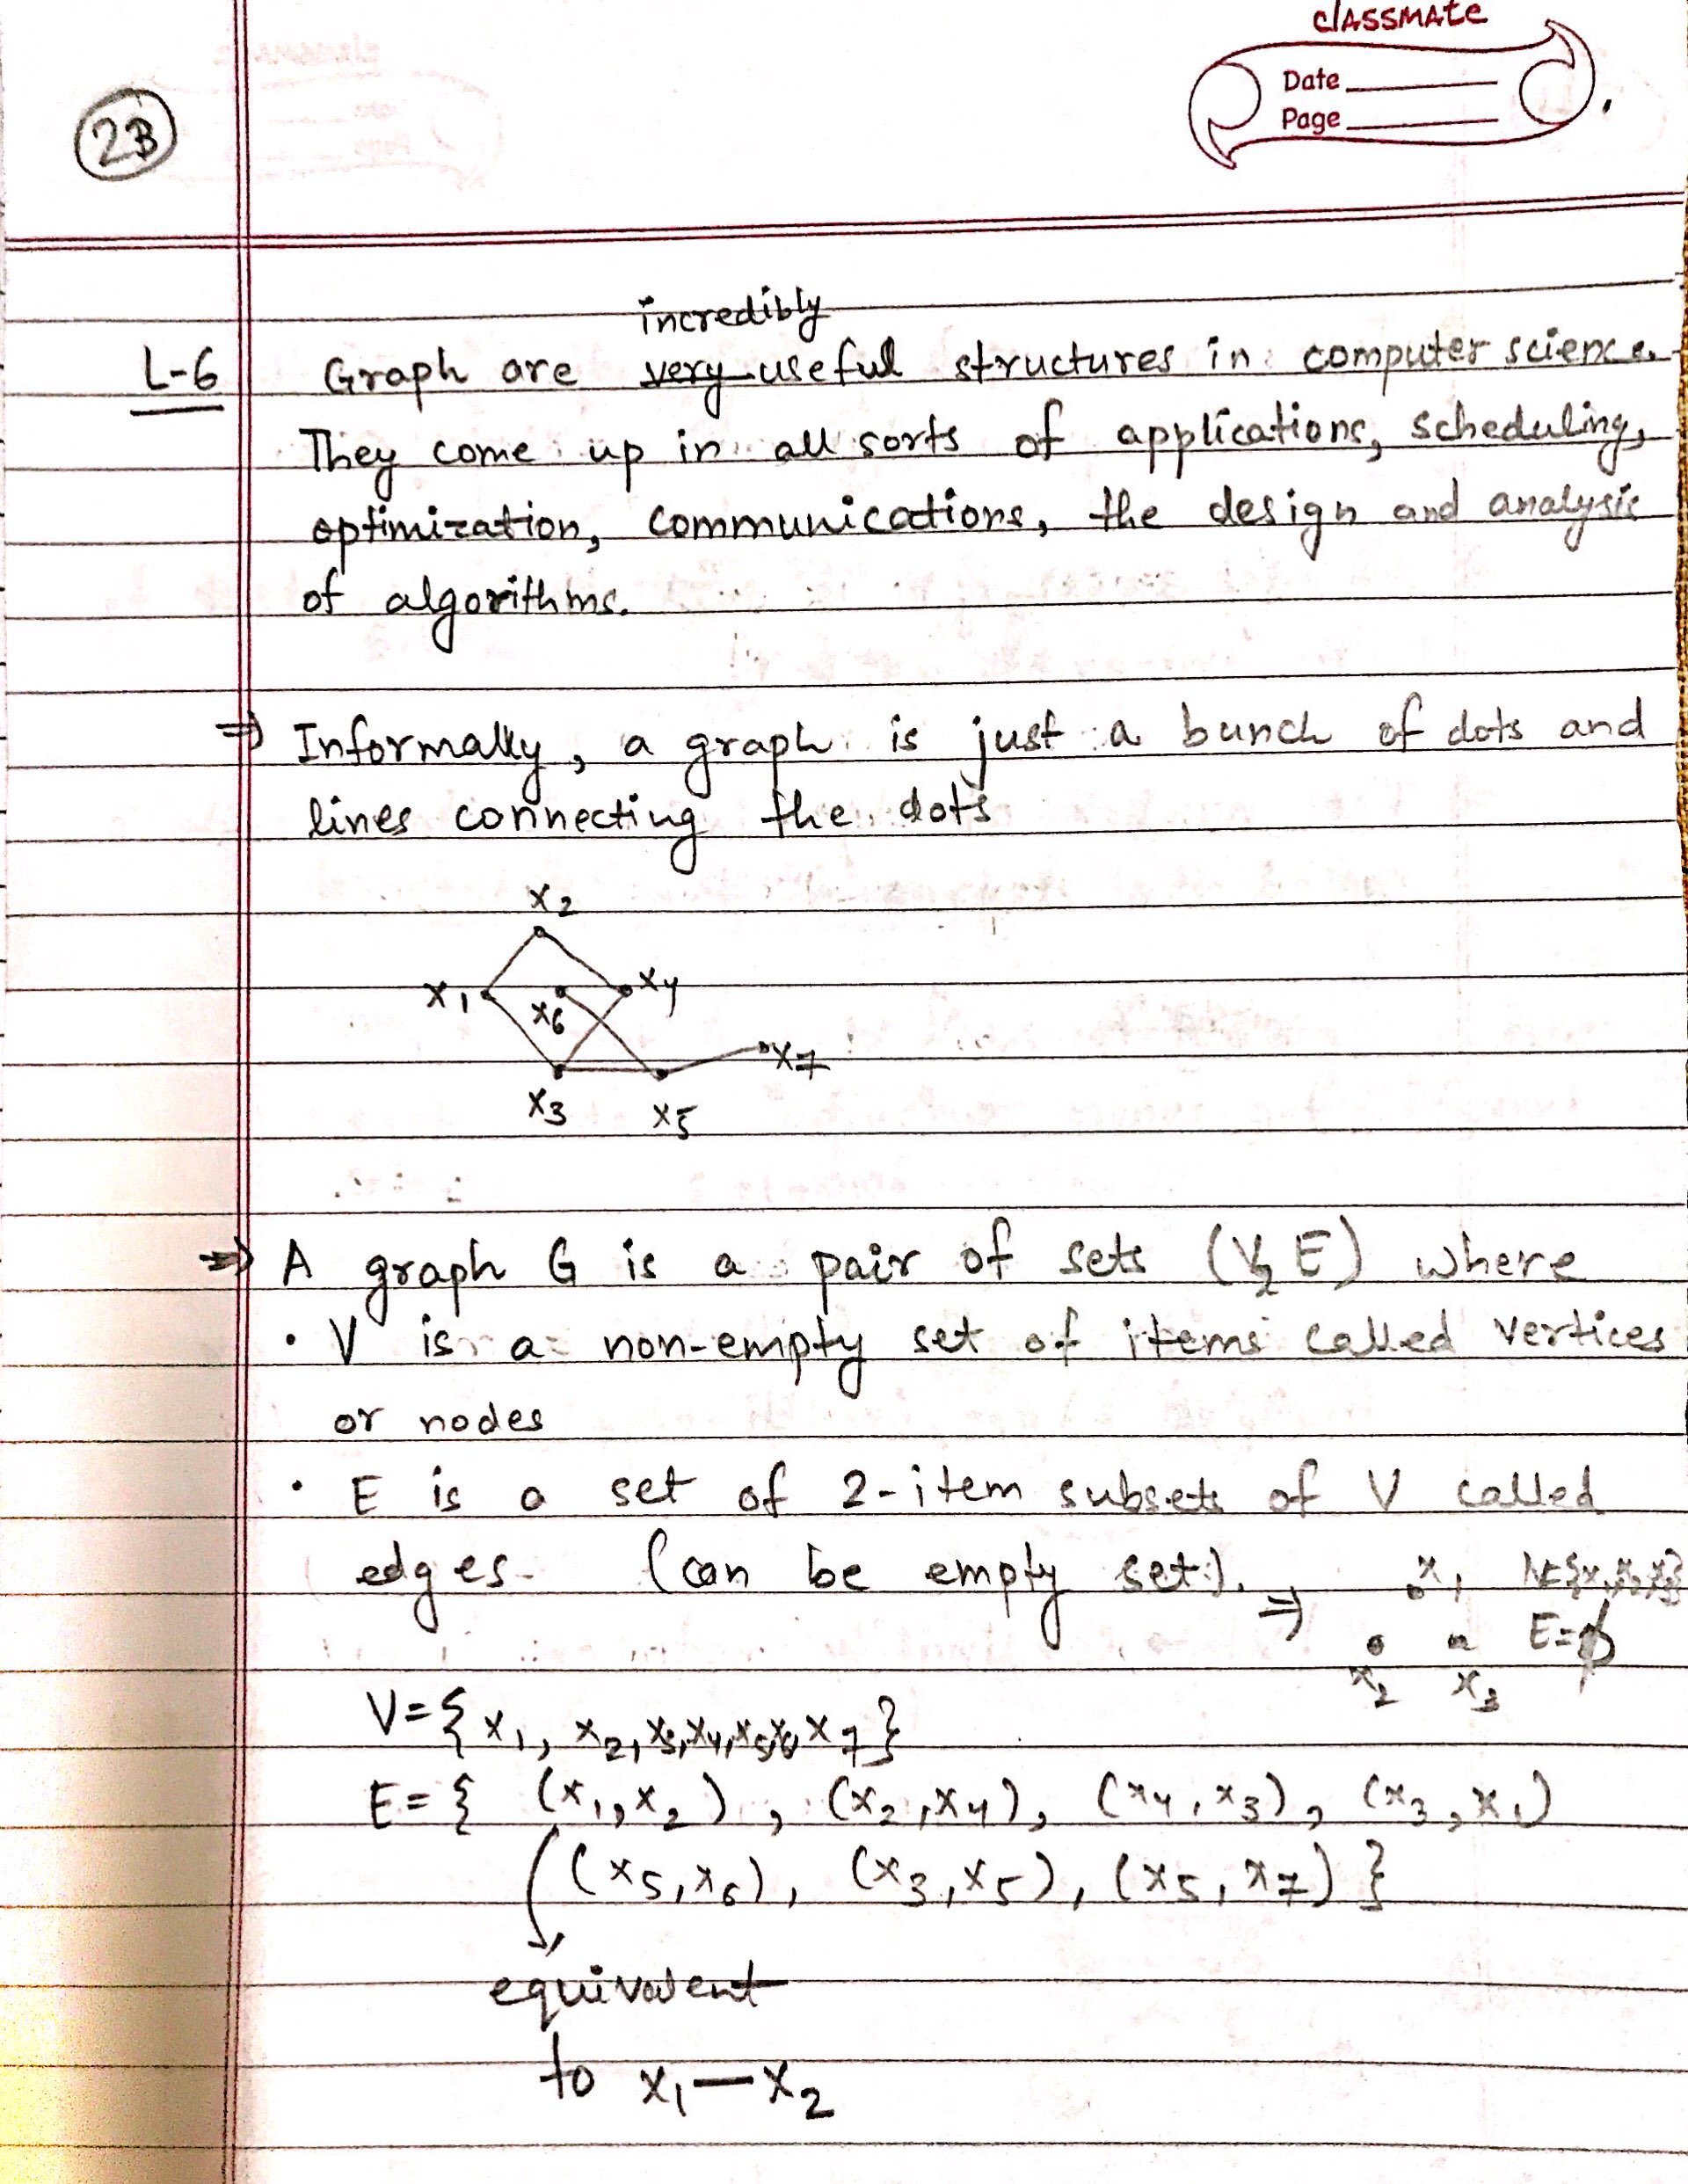 classmate
Date
Page
2B
incredibly
L-6 Graph are very useful structures in computer science.
They come up in all sorts of applications, scheduling,
optimization, communications, the design and analysis
of algorithms.
⇒ Informally, a graph is just a bunch of dots and
lines connecting the dots
x2
x1 x6 x4
x7
x3 x5
⇒ A graph G is a pair of sets (V, E) where
• V is a non-empty set of items called vertices
or nodes
• E is a set of 2-item subsets of V called
edges. (can be empty set). ⇒ x1 V={x1,x2,x3}
E=ϕ
x2 x3
V={x1, x2, x3, x4, x5, x6, x7}
E={ (x1, x2), (x2, x4), (x4, x3), (x3, x1)
(x5, x6), (x3, x5), (x5, x7) }
equivalent
to x1—x2